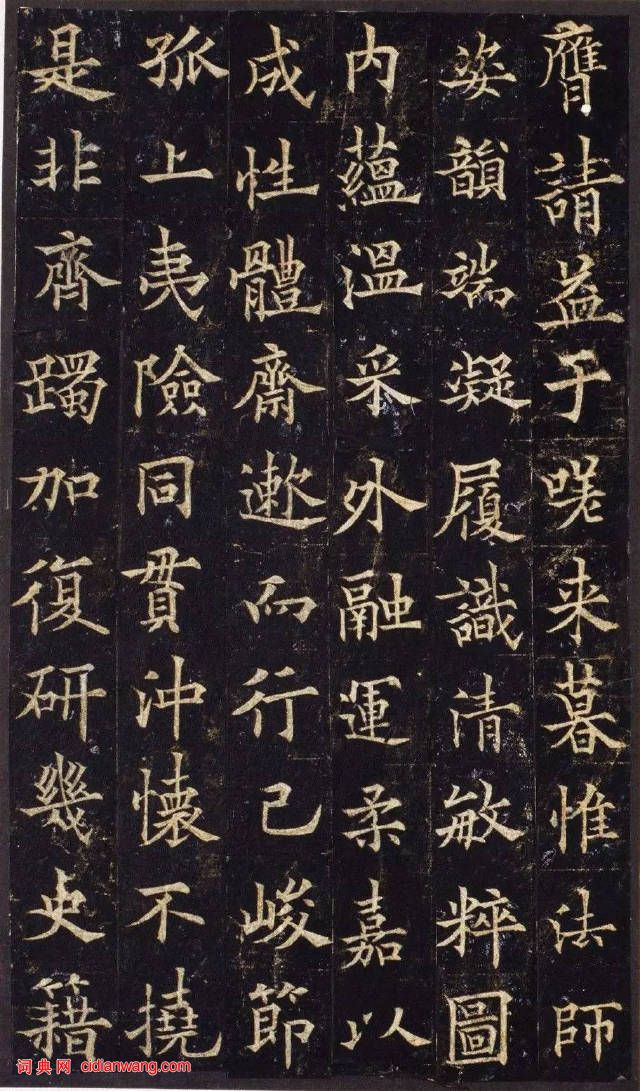 膺請益于嗟来暮惟法師
姿韻端凝履識清敏粹圖
内蘊溫采外融運柔嘉以
成性體齋遫而行己峻節
孤上夷險同貫沖懷不撓
是非齊躅加復研幾史籍
词典网 cidianwang.com